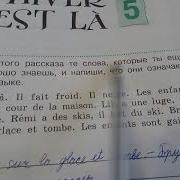 HIVER
EST LÀ
5
того рассказа те слова, которые ты ещ
ошо знаешь, и напиши, что они означа
языке.
Il fait froid. Il ne. Les enfan
cour de la maison. Li a une luge,
Rémi a des skis, il fait du ski. Br
glace et tombe. Les enfants sont gai
sur la glace et